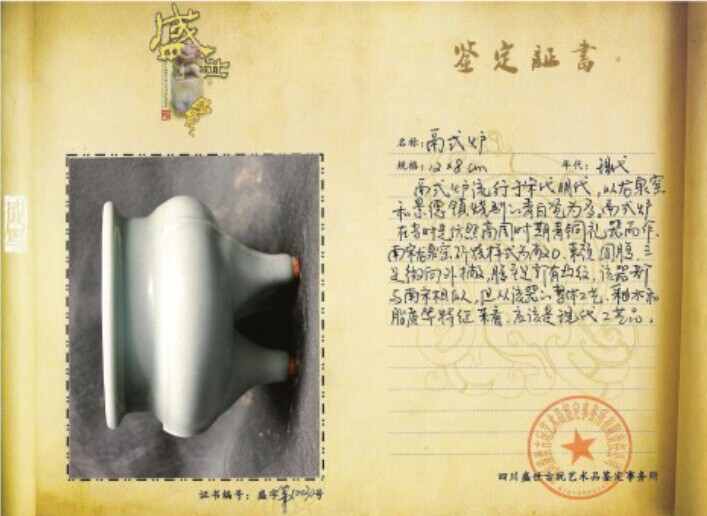 盛世
鉴定証書
名称：鬲式炉
规格：12×8cm 年代：现代
鬲式炉流行于宋代明代，以龙泉窑
和景德镇烧制的青白瓷为多。鬲式炉
在当时是仿照商周时期青铜礼器而作
南宋龙泉窑所烧样式为敞口、束颈、圆腹、三
足微向外撇，腹至足前有凸纹，该器形
与南宋相似，但从该器的整体工艺、釉水和
胎质等特征来看，应该是现代工艺品。
盛世
四川盛世古玩艺术品鉴定事务所
证书编号：盛字第号